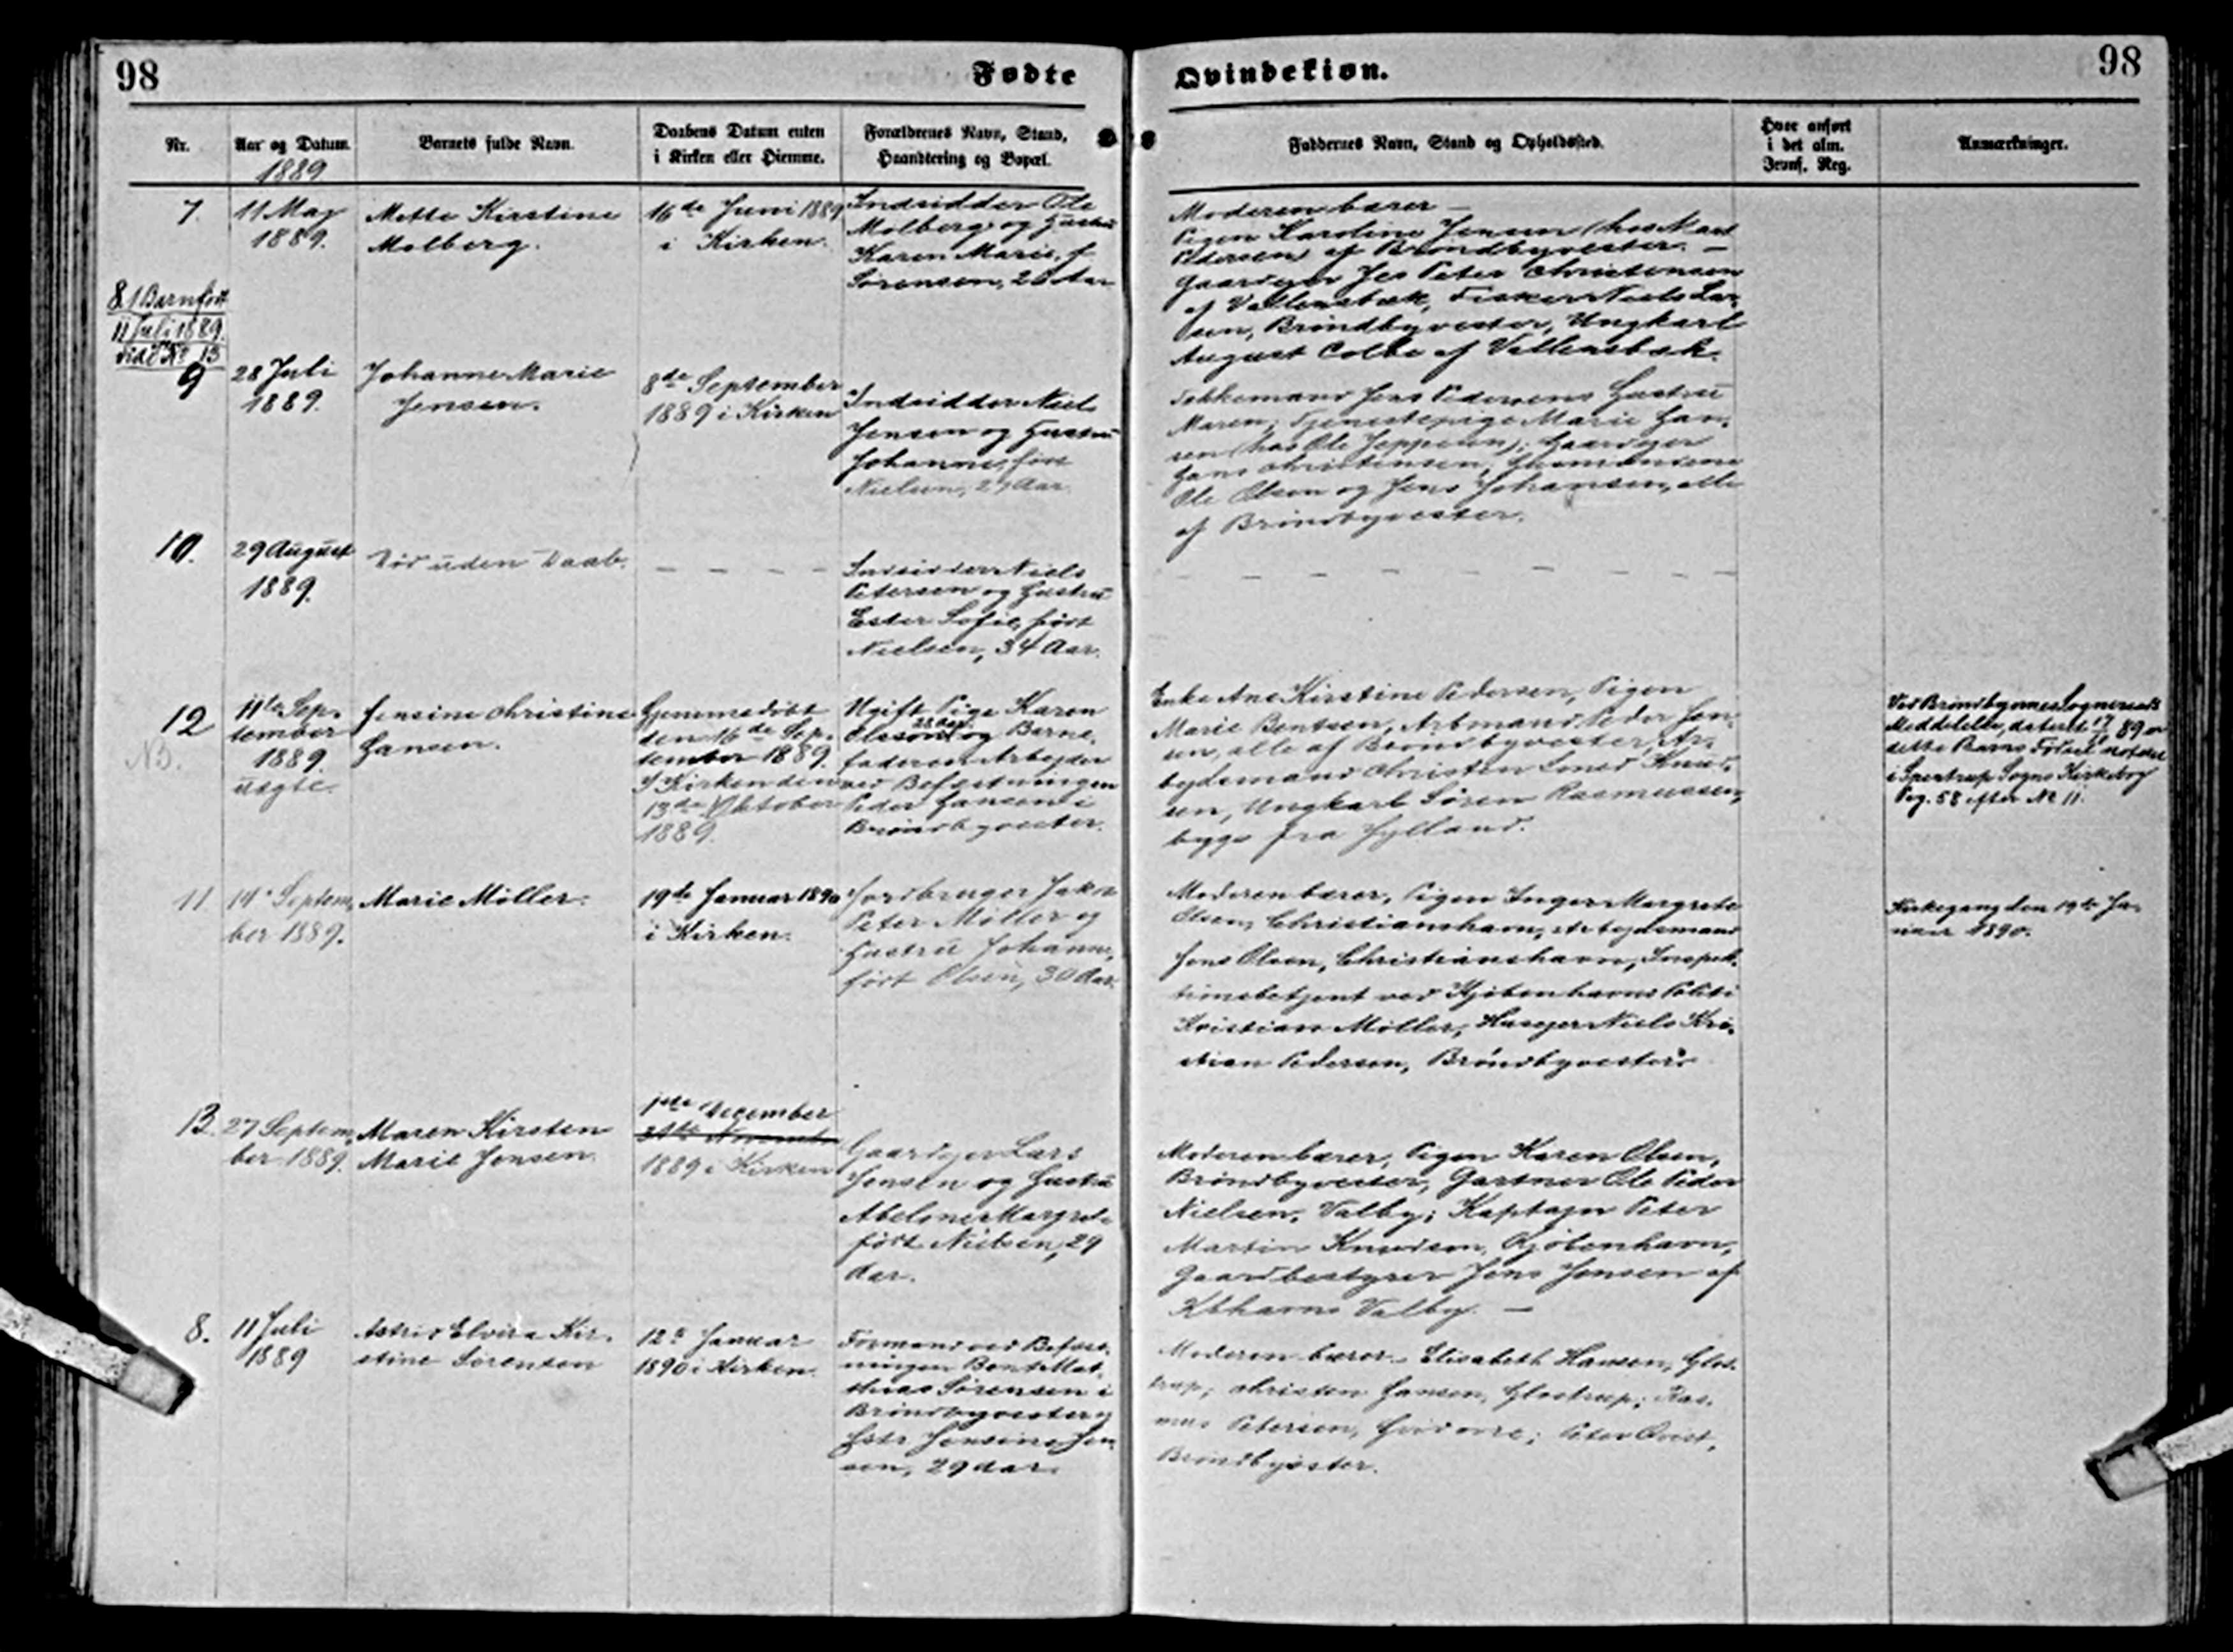 98
Fødte
Qvindekiøn.
98
Nr.
Aar og Datum.
Barnets fulde Navn.
Daabens Datum enten
i Kirken eller Hiemme.
Forældrenes Navn, Stand,
Haandtering og Bopæl.
Faddernes Navn, Stand og Opholdssted.
Hvor anført
i det alm.
Jevnf. Reg.
Anmærkninger.
1889
7.
11 May
1889.
Mette Kirstine
Molberg.
16de Juni 1889
i Kirken.
Indsidder Ole
Molberg og Hustru
Karen Marie, f.
Sørensen, Aar
Moderen bærer —
Pigen Karoline Jensen (hos
Pedersen) af Brøndbyvester. —
Gaardejer Jes Peter Christensen
af Vallensbæk, Fisker Niels Lar-
sen, Brøndbyvester, Ungkarl
August Colbe af Vallensbæk.
8. 1 Barn født
11 Juli 1889.
vide No 13
9
28 Juli
1889.
Johanne Marie
Jensen.
8de September
1889 i Kirken
Indsidder Niels
Jensen og Hustru
Johanne, født
Nielsen, 29 Aar.
Jens Pedersens Hustru
Maren; Tjenestepige Marie Han-
sen (hos Ole Jeppesen); Gaardejer
Hans Christensen,
Ole Olsen og Jens Johansen, alle
af Brøndbyvester.
10.
29 August
1889.
Død uden Daab.
— — — —
Indsidder Niels
Petersen og Hustru
Ester Sofie, født
Nielsen, 34 Aar.
— — — — — — — —
12
NB.
11te Sep-
tember
1889.
uægte.
Jensine Christine
Hansen.
Hjemmedøbt
den 16de Sep-
tember 1889.
I Kirken den
13de Oktober
1889.
Ugift Pige Karen
Olsson og Barne-
faderen Arbejder
ved Befæstningen
Peder Hansen i
Brøndbyvester.
Enke Ane Kirstine Pedersen, Pigen
Marie Bentsen, Arbmand Peder Jen-
sen, alle af Brøndbyvester, Ar-
bejdsmand Christen Knud-
sen, Ungkarl Søren Rasmussen,
begge fra Jylland.
Ved Brøndbyernes Sogneraads
Meddelelse, dateret 89 er
dette Barns Fødsel noteret
i Spentrup Sogns Kirkebog
Pag. 58 efter No 11.
11.
14de Septem-
ber 1889.
Marie Møller.
19de Januar 1890
i Kirken.
Jordbruger Jakob
Peter Møller og
Hustru Johanne,
født Olsen, 30 Aar.
Moderen bærer, Pigen Inger Margrete
Olsen, Christianshavn, Arbejdsmand
Jens Olsen, Christianshavn, Inspek-
tionsbetjent ved Kjøbenhavns Politi
Kristian Møller, Husejer Niels Kri-
stian Pedersen, Brøndbyvester.
Kirkegang den 19de Ja-
nuar 1890.
13.
27 Septem-
ber 1889.
Maren Kirsten
Marie Jensen
1ste December
November
1889 i Kirken
Gaardejer Lars
Jensen og Hustru
Abelone Margrete
født Nielsen, 29
Aar.
Moderen bærer, Pigen Karen Olsen,
Brøndbyvester, Gartner Ole Peder
Nielsen, Valby; Kaptajn Peter
Martin Knudsen, Kjøbenhavn,
Gaardbestyrer Jens Jensen af
Kbhavns Valby. —
8.
11 Juli
1889
Astrid Elvira Kir-
stine Sørensen
12te Januar
1890 i Kirken.
Formand ved Befæst-
ningen Bent Mat-
thias Sørensen i
Brøndbyvester og
Hstr. Jensine Jen-
sen, 29 Aar.
Moderen bærer. Elisabeth Hansen, Glos-
trup; Christen Hansen, Glostrup; Ras-
mus Petersen, Hvidovre; Peter Qvist,
Brøndbyøster.